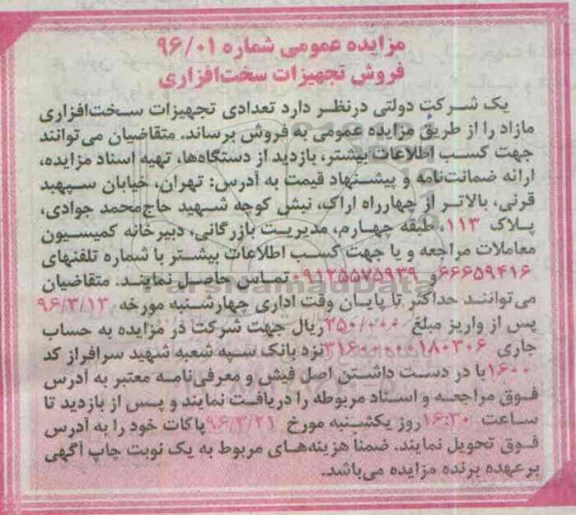 مزایده عمومی شماره ۹۶/۰۱
فروش تجهیزات سخت‌افزاری
یک شرکت دولتی درنظر دارد تعدادی تجهیزات سخت‌افزاری
مازاد را از طریق مزایده عمومی به فروش برساند. متقاضیان می‌توانند
جهت کسب اطلاعات بیشتر، بازدید از دستگاه‌ها، تهیه اسناد مزایده،
ارائه ضمانت‌نامه و پیشنهاد قیمت به آدرس: تهران، خیابان سپهبد
قرنی، بالاتر از چهارراه اراک، نبش کوچه شهید حاج‌محمد جوادی،
پلاک ۱۱۳، طبقه چهارم، مدیریت بازرگانی، دبیرخانه کمیسیون
معاملات مراجعه و یا جهت کسب اطلاعات بیشتر با شماره تلفنهای
۶۶۶۵۹۴۱۶ و ۰۹۱۲۵۵۷۵۹۳۹ تماس حاصل نمایند. متقاضیان
می‌توانند حداکثر تا پایان وقت اداری چهارشنبه مورخه ۹۶/۳/۱۳
پس از واریز مبلغ ۲۵۰/۰۰۰ ریال جهت شرکت در مزایده به حساب
جاری ۳۱۶۰۰۰۰۰۱۸۰۳۰۶ نزد بانک سپه شعبه شهید سرافراز کد
۱۶۰۰ با در دست داشتن اصل فیش و معرفی‌نامه معتبر به آدرس
فوق مراجعه و اسناد مربوطه را دریافت نمایند و پس از بازدید تا
ساعت ۱۶:۳۰ روز یکشنبه مورخ ۹۶/۳/۲۱ پاکات خود را به آدرس
فوق تحویل نمایند. ضمناً هزینه‌های مربوط به یک نوبت چاپ آگهی
برعهده برنده مزایده می‌باشد.